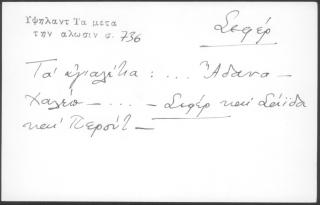 Υψηλαντ Τα μετα
την αλωσιν σ. 736
Σεφέρ
Τα αγιαλέτια : ... Άδανα –
Χαλέπ – ... – Σεφέρ και Σάιδα
και Περούτ –